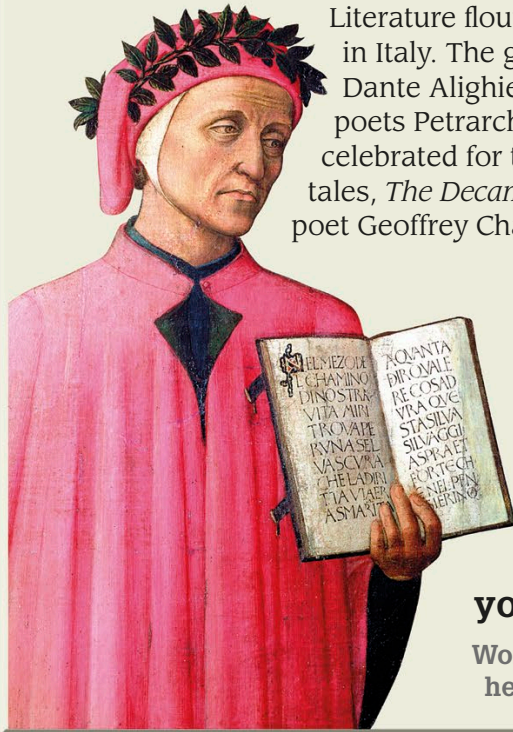 Literature flou
in Italy. The g
Dante Alighie
poets Petrarch
celebrated for t
tales, The Decan
poet Geoffrey Cha
NELMEZODE
LCHAMINO
DINOSTRA
VITA MIRI
TROVAPE
RVNASEL
VASCVRA
CHELADIRI
TTAVIAER
ASMARIT
AQVANTA
DIRQVALE
RECOSAD
VRAQVE
STASILVA
SILVAGGI
ASPRAET
FORTECH
ENELPEN
yo
Wo
he